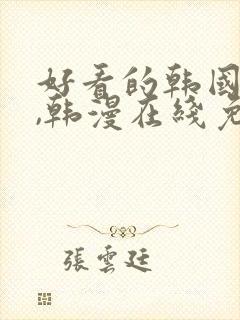 好看的韩国
,韩漫在线免
張雲廷